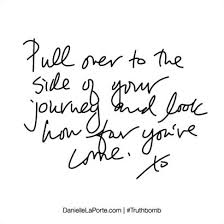 Pull over to the
side of your
journey and look
how far you've
come. xo
DanielleLaPorte.com | #Truthbomb